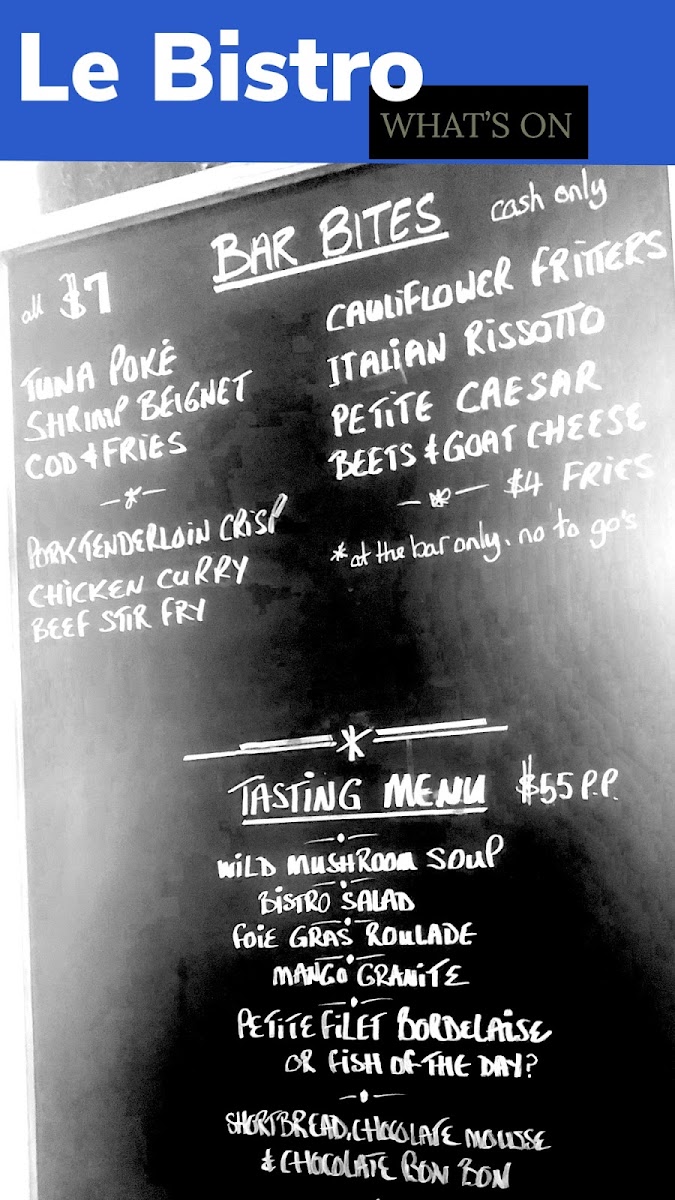 Le Bistro
WHAT'S ON
BAR BITES
cash only
all $7
TUNA POKÉ
SHRIMP BEIGNET
COD & FRIES
PORK TENDERLOIN CRISP
CHICKEN CURRY
BEEF STIR FRY
CAULIFLOWER FRITTERS
ITALIAN RISSOTTO
PETITE CAESAR
BEETS & GOAT CHEESE
$4 FRIES
*at the bar only. no to go's
TASTING MENU $55 P.P.
WILD MUSHROOM SOUP
BISTRO SALAD
FOIE GRAS ROULADE
MANGO GRANITE
PETITE FILET BORDELAISE
OR FISH OF THE DAY?
SHORTBREAD, CHOCOLATE MOUSSE
& CHOCOLATE BON BON